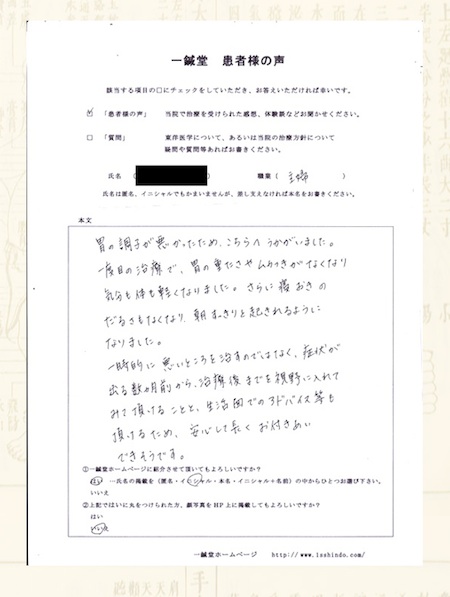 一鍼堂 患者様の声
該当する項目の□にチェックをしていただき、お答えいただければ幸いです。
☑ 「患者様の声」 当院で治療を受けられた感想、体験談などお聞かせください。
□ 「質問」 東洋医学について、あるいは当院の治療方針について
疑問や質問等あればお書きください。
氏名 ( ) 職業 ( 主婦 )
氏名は匿名、イニシャルでもかまいませんが、差し支えなければ本名をお書きください。
本文
胃の調子が悪かったため、こちらへうかがいました。
一度目の治療で、胃の重たさやムカつきがなくなり
気分も体も軽くなりました。さらに寝おきの
だるさもなくなり、朝すっきりと起きれるように
なりました。
一時的に悪いところを治すのではなく、症状が
出る数ヵ月前から、治療後までを視野に入れて
みて頂けることと、生活面でのアドバイス等も
頂けるため、安心して長くお付きあい
できそうです。
①一鍼堂ホームページに紹介させて頂いてもよろしいですか?
はい …氏名の掲載を(匿名・イニシャル・本名・イニシャル+名前)の中からひとつお選び下さい。
いいえ
②上記ではいに丸をつけられた方、顔写真をHP上に掲載してもよろしいですか?
はい
いいえ
一鍼堂ホームページ http://www.isshindo.com/